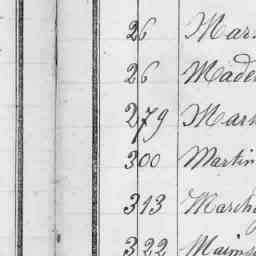 26 Mars
26 Made
279 Mar
300 Martin
313 March
322 Maim